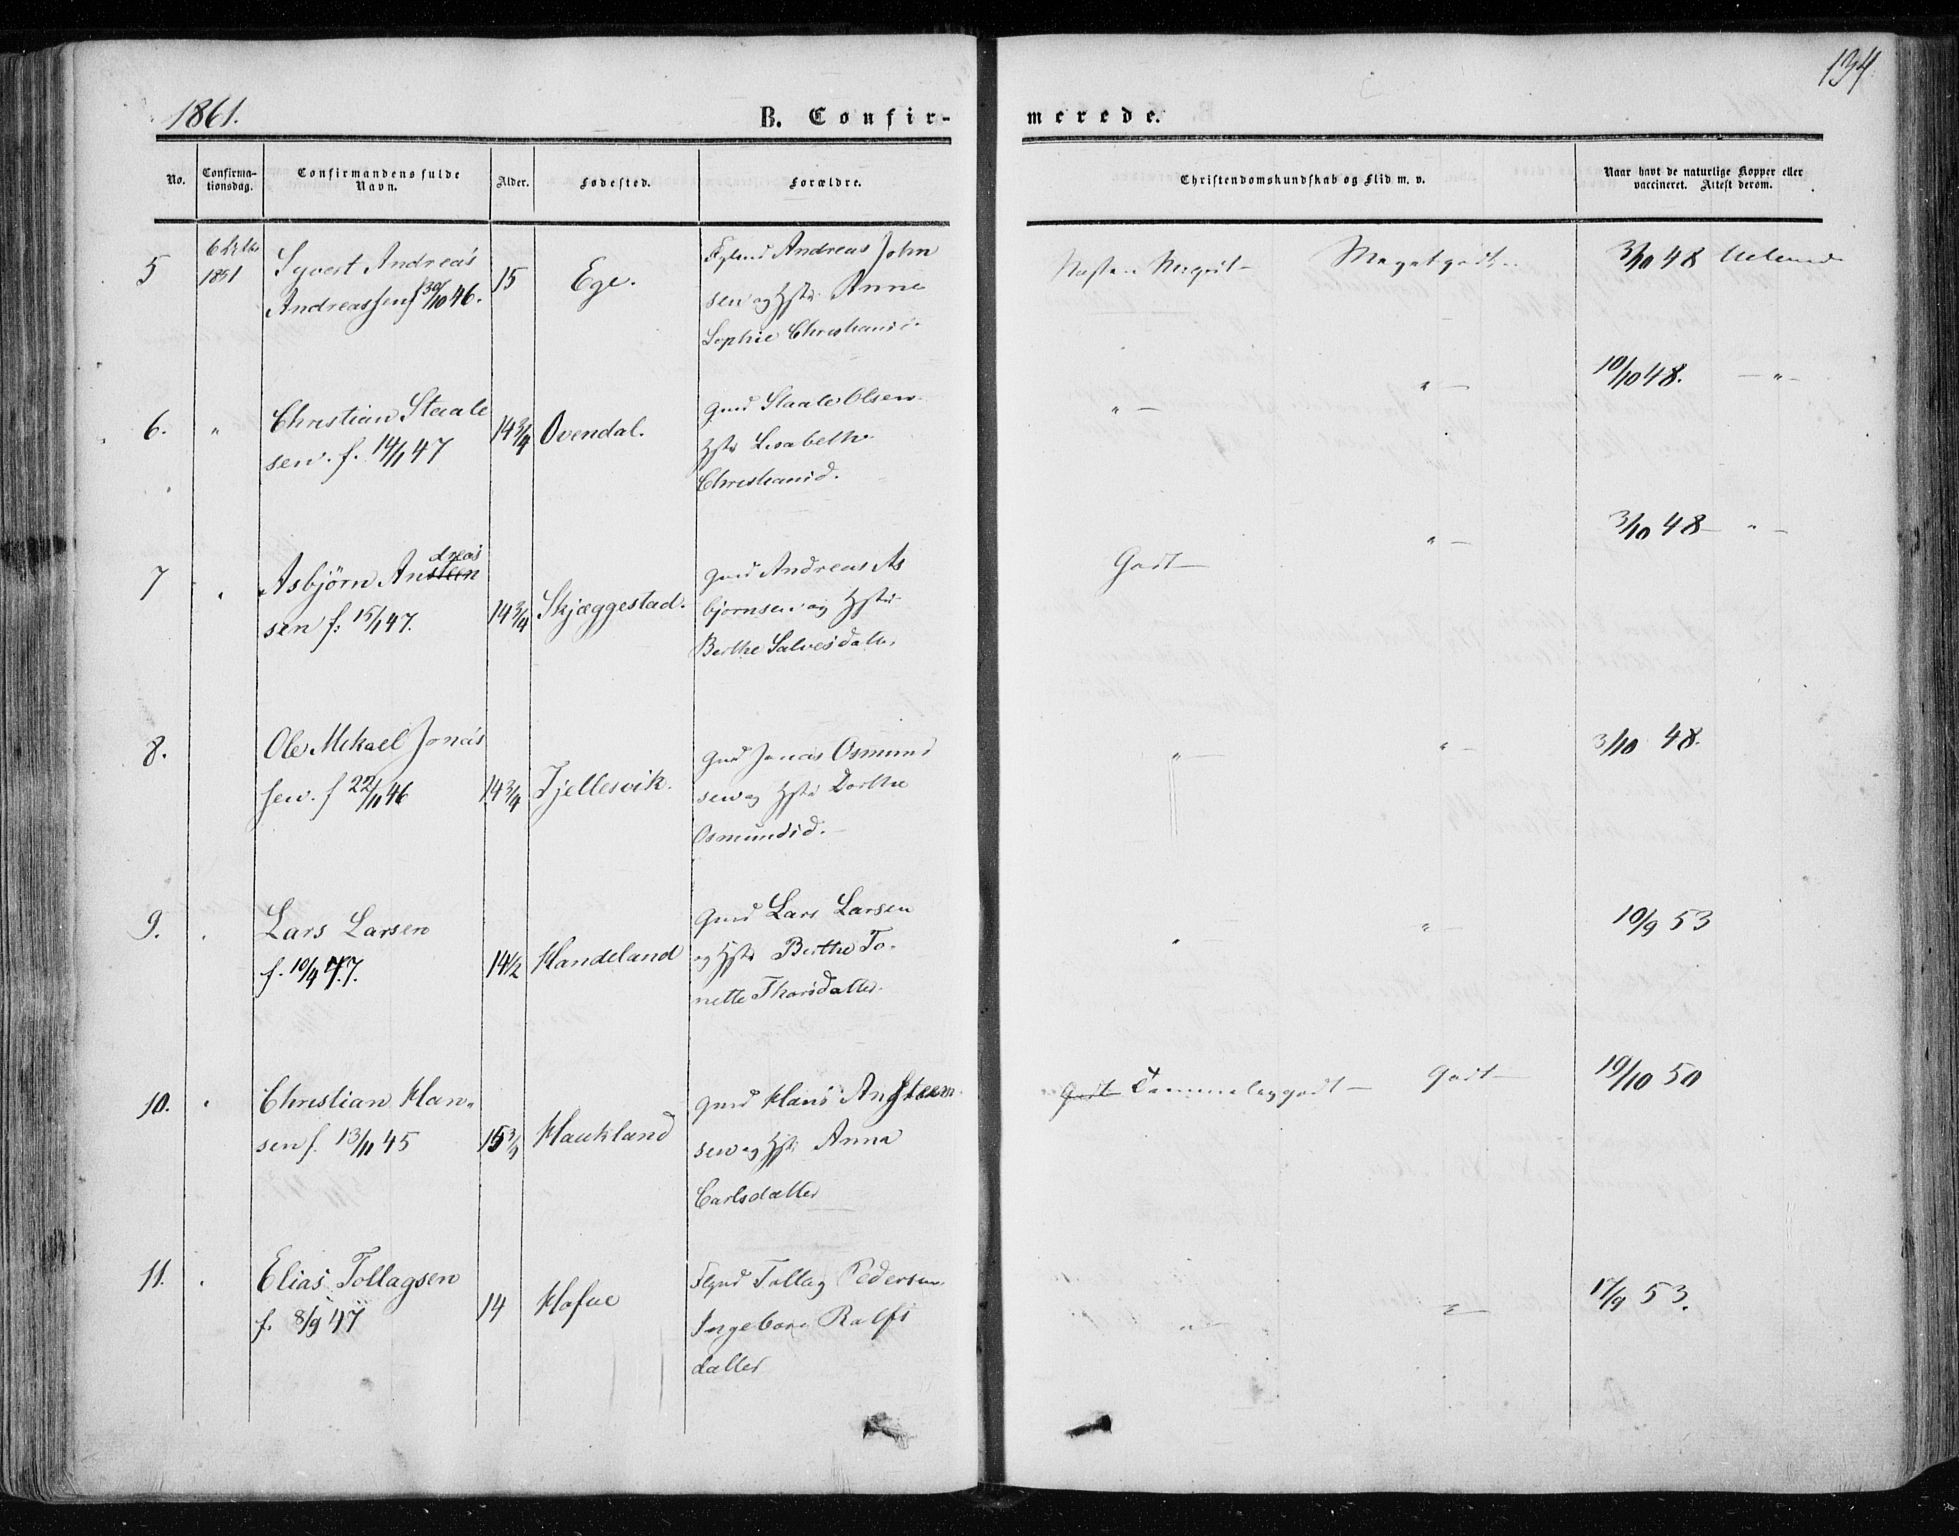 134
1861.
B. Confir-
merede.
No.
Confirma-
tionsdag.
Confirmandens fulde
Navn.
Alder.
Fødested.
Forældre.
Christendomskundskab og Flid m. v.
Naar havt de naturlige Kopper eller
vaccineret. Attest derom.
5
Syvert Andreas
Andreassen f 30/10 46.
15
Ege.
Andreas John
sen og Hstr Anne
Sophie Christiansd.
Næsten Megest
Megetgodt
3/10 48
6.
"
Christian Staale
sen. f. 14/1 47
14 3/4
Ovendal.
Gmd Staale Olsen
Hstr Lisabeth
Christiansd.
"
"
10/10 48. - " -
7
Asbjörn Andreas
sen f: 15/1 47.
14 3/4
Skjæggestad.
Gmd Andreas As
bjørnsen og Hstr
Berthe Salvesdatter
Godt
"
3/10 48 - " -
8.
Ole Mikael Jonas
sen. f 22/11 46
14 3/4
Fjellesvik.
Gmd Jonas Osmund
sen og Hstr Dorthe
Osmundsd.
"
"
3/10 48.
9.
Lars Larsen
f. 10/4 47.
14 1/2
Handeland
Gmd Lars Larsen
og Hstr Berthe To-
nette Thorsdatter.
"
"
10/9 53
10.
Christian Han-
sen f. 13/11 45
15 3/4
Haukland
Gmd Hans Ansteen
sen og Hstr Anna
Carlsdatter
Godt Temmeleg godt
Godt
19/10 50
11.
Elias Tollagsen
f. 8/9 47
14
Hafne
Tollag Pedersen
Ingeborg Ralfs
datter
"
"
17/9 53.